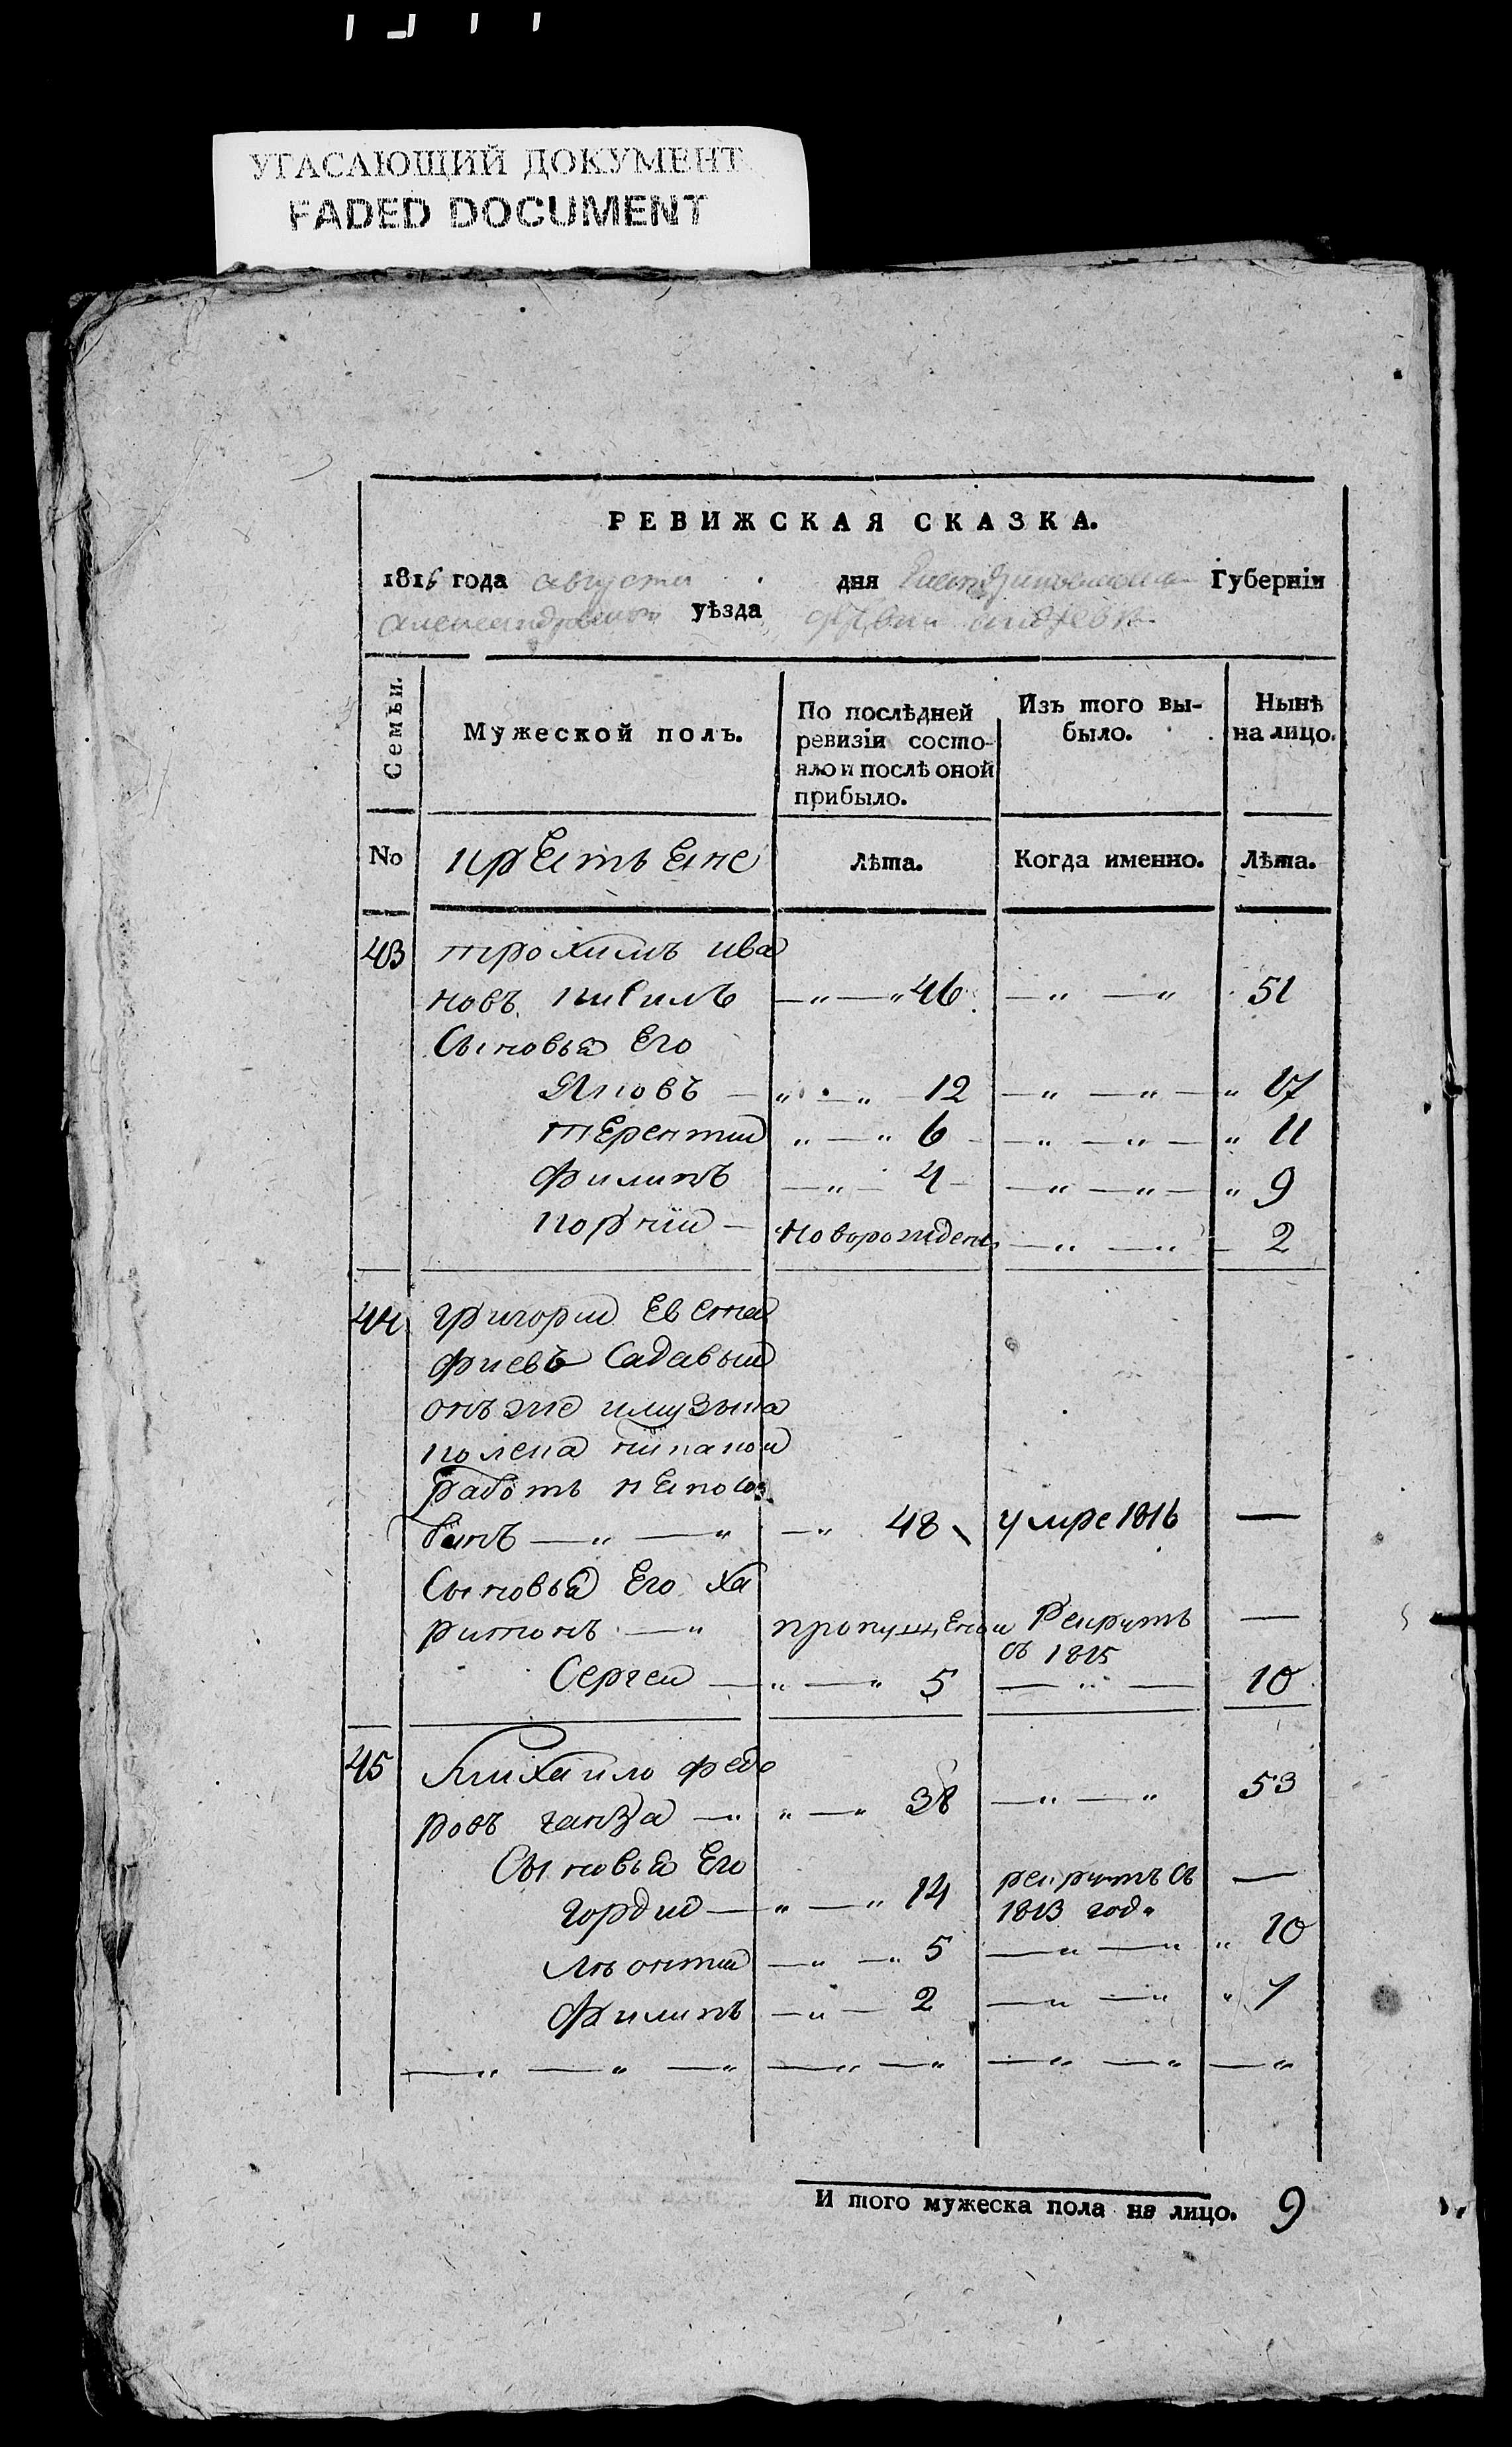 УГАСАЮЩИЙ ДОКУМЕНТ
FADED DOCUMENT
РЕВИЖСКАЯ СКАЗКА.
1816 года августа дня Губернiи
уѣзда
Семьи.
Мужеской полъ.
По послѣдней ревизiи состояло и послѣ оной прибыло.
Изъ того выбыло.
Нынѣ на лицо.
No
Лѣта.
Когда именно.
Лѣта.
43 трохимъ ива
новъ —„—„ 46 —„ —„ 51
Сыновья Его
Яковъ — „ — „ — 12 —„ —„— „ 17
терентии „ — „ 6 —„ —„— „ 11
филипъ —„— 4 —„ —„— „ 9
корнiи — новорожденъ —„ —„ — 2
44 григории Евста
фиевъ Садавыи
работъ
—„ —„ —„ 48 умре 1816 —
Сыновья Его Ха
ритонъ —„ пропущенъ и Рекрутъ —
съ 1815
Сергеи —„ —„ 5 — „ — 10
45 Михаило федо
ровъ ганза —„ „ —„ 38 —„ —„ 53
Сыновья Его
гордии — „ —„ 14 рекрутъ съ —
1813 года
Леонтии —„ —„ 5 —„ —„ „ 10
филипъ —„— 2 —„ —„ „ 7
—„ —„ —„ —„ —„ —„ —„ —„
И того мужеска пола на лицо. 9